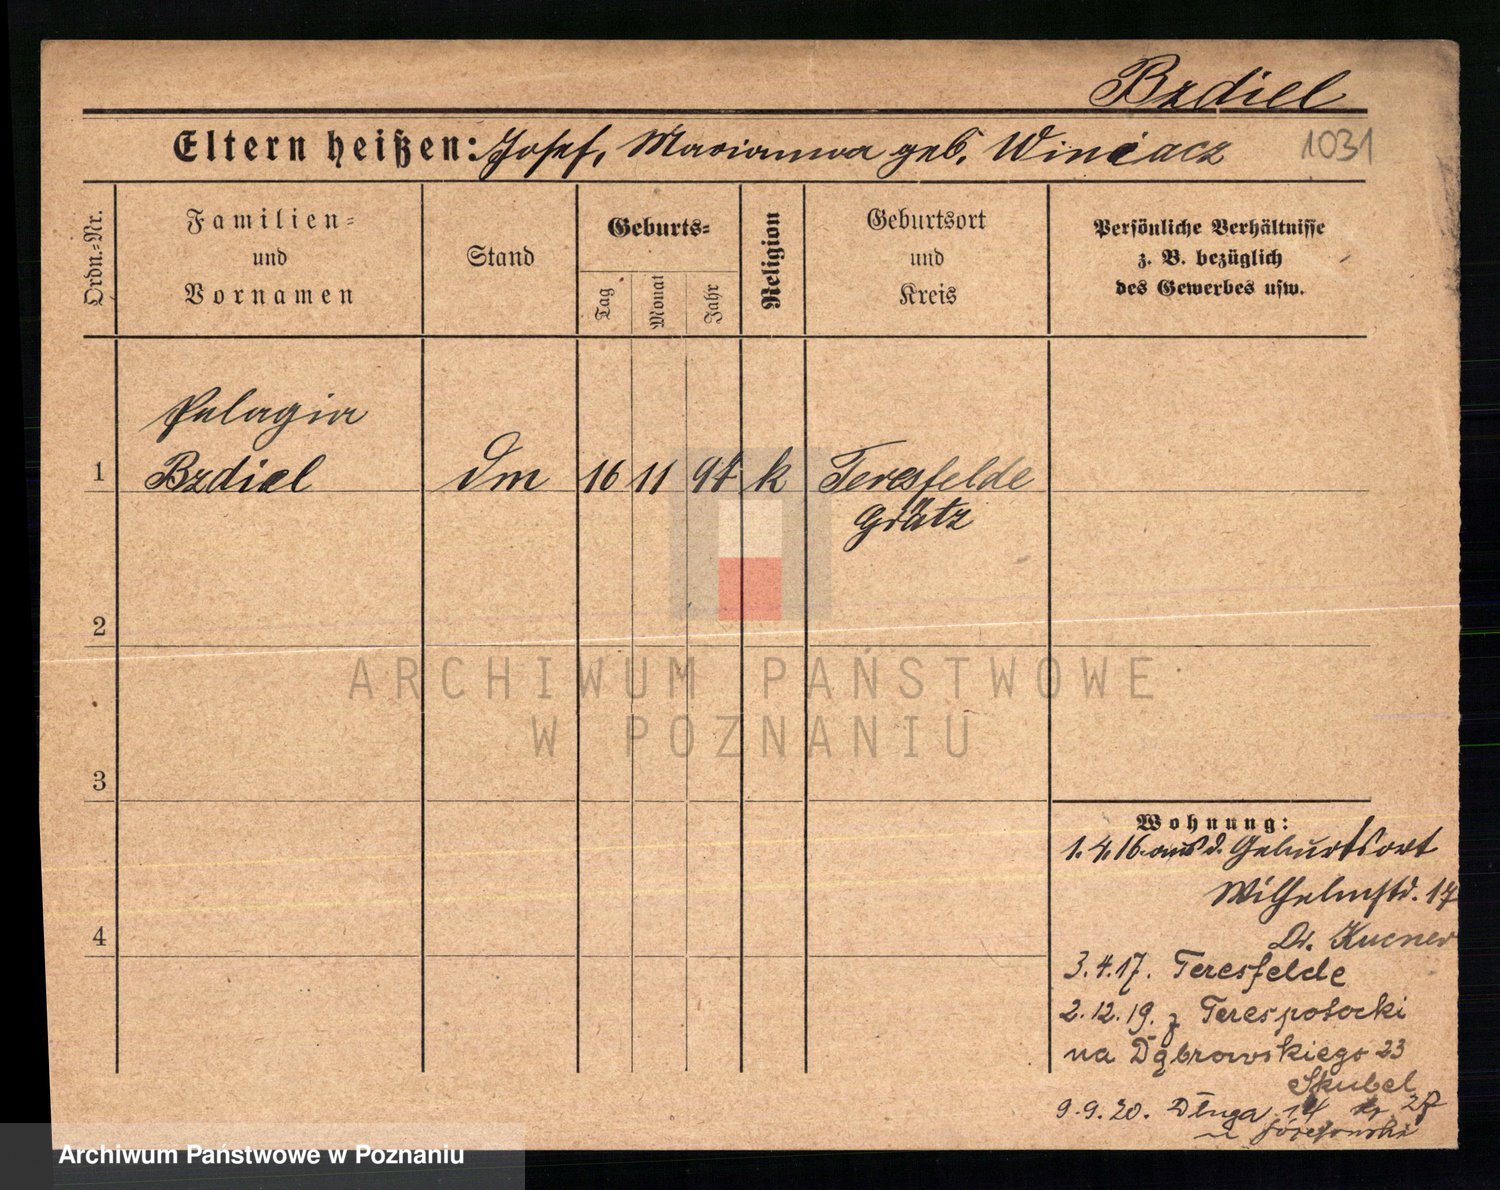 Bzdiel
Eltern heißen: Josef, Marianna geb. Winiacz
1031
Ordn.-Nr.
Familien-
und
Vornamen
Stand
Geburts-
Tag
Monat
Jahr
Religion
Geburtsort
und
Kreis
Persönliche Verhältnisse
z. B. bezüglich
des Gewerbes usw.
Pelagia
1 Bzdiel Dm 16 11 94 k Teresfelde
Grätz
2
3
4
ARCHIWUM PAŃSTWOWE
W POZNANIU
Wohnung:
1.4.16 aus d. Geburtsort
Wilhelmstr. 17
Dr. Kucner
3.4.17. Teresfelde
2.12.19. z Terespotocki
na Dąbrowskiego 23
Skubel
9.9.20. Długa 14
Archiwum Państwowe w Poznaniu